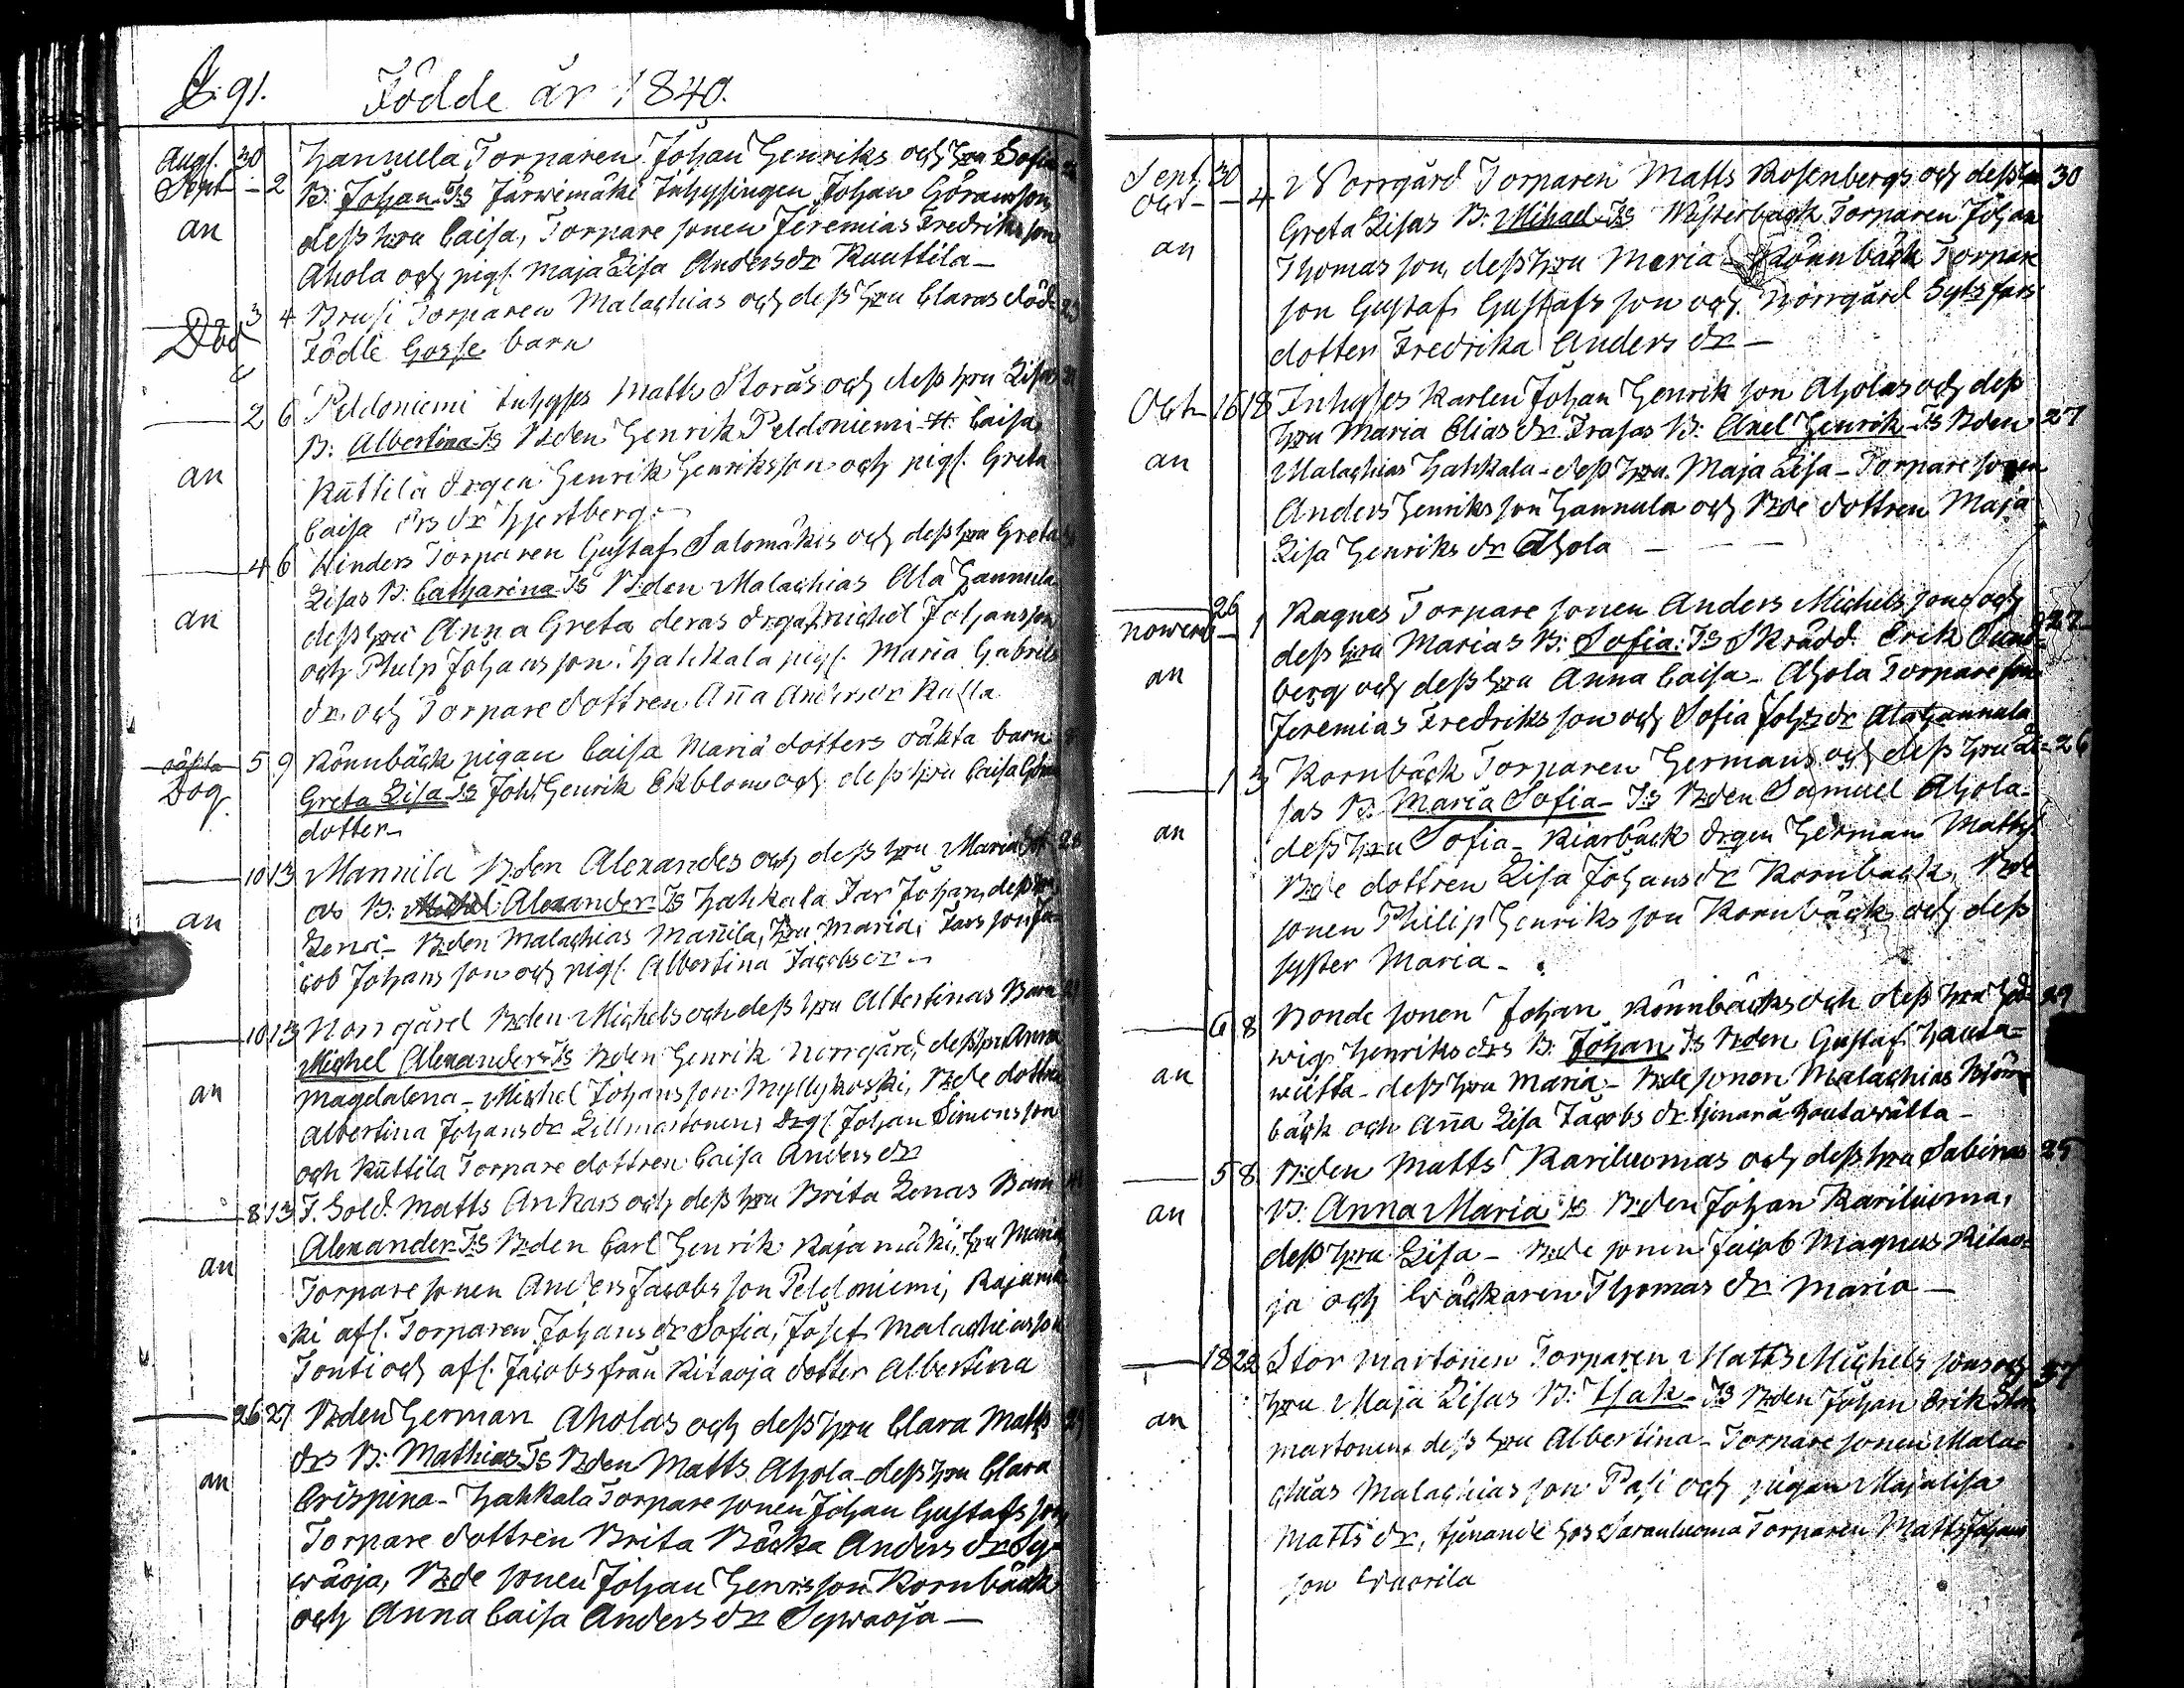 S. 91. Födde år 1840.
Augs. 30 Hannula Torparen Johan Henriks och hru Sofia
Sept - 2 B: Johan Ts Järwimäki Inhysingen Johan Göransson
an dess hru Caisa, Torpare sonen Jeremias Fredriksson
Ahola och pigs. Maja Lisa Andersdr Ruuttila -
3 4 Brusi Torparen Malachias och dess hru Claras död- 23
Död Födde Gosse barn
2 6 Peldoniemi Inhyses Matts Storås och dess hru Lisas
B: Albertina Ts Bden Henrik Peldoniemi H. Caisa,
an Ruttila drgen Henrik Henriksson och pigs. Greta
Caisa Ers dr Hjertberg -
4 6 Hinders Torparen Gustaf Salomäkis och dess hru Greta
Lisas B: Catharina Ts Bden Malachias Ala Hannula
an dess hru Anna Greta deras drgar Michel Johansson
och Philp Johansson, Hahkala pigs. Maria Gabriels
dr. och Torpare dottren Aña Andersdr Kulla
oäkta 5 9 Rönnbäck pigan Caisa Maria dotters oäkta barn
Dog Greta Lisa Ts Joh Henrik Ekblom och dess hru Caisa Görans
dotter
10 13 Mannila Bden Alexanders och dess hru Maria 28
as B: Alexander Ts Hahkala Far Johan, dess hru
an Lena - Bden Malachias Mañila, hru Maria, Fars son Ja-
cob Johansson och pigs. Albertina Jacobsdr -
10 13 Norrgård Bden Michels och dess hru Albertinas Barn
Michel Alexander Ts Bden Henrik Norrgård, dess hru Anna
an Magdalena - Michel Johansson Myllykoski, Bde dottren
Albertina Johansdr Lillmartonen, Drgs. Johan Simonsson
och Ruttila Torpare dottren Caisa Andersdr
8 13 F. Sold. Matts Ankars och dess hru Brita Lenas Barn
Alexander Ts Bden Carl Henrik Rajamäki, hru Maria
an Torpare sonen Anders Jacobsson Peldoniemi, Rajamä-
ki afl. Torparen Johansdr Sofia, Josef Malachiasson
Tonti och afl. Jacobs från Ritaoja dotter Albertina
26 27 Bden Herman Aholas och dess hru Clara Matts
drs B: Mathias Ts Bden Matts Ahola - dess hru Clara
an Crispina - Hahkala Torpare sonen Johan Gustafsson
Torpare dottren Brita Bäcka Andersdr Sy-
wäoja, Bde sonen Johan Henrsson Kornbäck
och Anna Caisa Andersdr Sywäoja -
Sept 30 Norrgård Torparen Matts Rosenbergs och dess hru 30
Oct - 4 Greta Lisas B: Mihael Ts Wästerback Torparen Johan
an Thomas son, dess hru Maria - Rönnbäck Torpare
son Gustaf Gustafs son och Norrgård Sytsfars
dotter Fredrika Anders dr -
Oct 16 18 Inhyses Karlen Johan Henrik son Aholas och dess
hru Maria Elias dr Frasas B: Axel Henrik Ts Bden 27
an Malachias Hahkala - dess hru Maja Lisa - Torpare sonen
Anders Henriks son Hannula och Bde dottren Maja
Lisa Henriks dr Ahola -
26 Ragnes Torpare sonen Anders Michels sons och
Nowemb - 1 dess hru Marias B: Sofia Ts Skrädd. Erik Sund- 27
an berg och dess hru Anna Caisa - Ahola Torpare son
Jeremias Fredriks son och Sofia Johs dr Alahannula
1 3 Kornbäck Torparen Hermans och dess hru Li- 26
sas B: Maria Sofia - Ts Bden Samuel Ahola -
an dess hru Sofia - Kiarbäck drgen Herman Mattss.
Bde dottren Lisa Johans dr Kornback, Bde
sonen Philip Henriks son Kornbäck och dess
syster Maria -
6 8 Bonde sonen Johan Rönnbäcks och dess hru Hed- 29
wig Henriks drs B: Johan Ts Bden Gustaf Hauta-
an wiitta - dess hru Maria - Bde sonen Malachias Björn-
bäck och Aña Lisa Jacobs dr tjenar å Hautawiitta -
5 8 Bden Matts Kariluomas och dess hru Sabinas 25
an B: Anna Maria Ts Bden Johan Kariluoma,
dess hru Lisa - Bde sonen Jacob Magnus Ritao-
ja och Wäckaren Thomas dr Maria -
18 22 Stor Martonen Torparen Matts Michels sons och 37
hru Maja Lisas B: Isak - Ts Bden Johan Erik Stor
an martonen, dess hru Albertina - Torpare sonen Mala-
chias Malachias son Pasi och pigan Majalisa
Matts dr, tjenande hos Saranluoma Torparen Matts Johans
son Wuorila